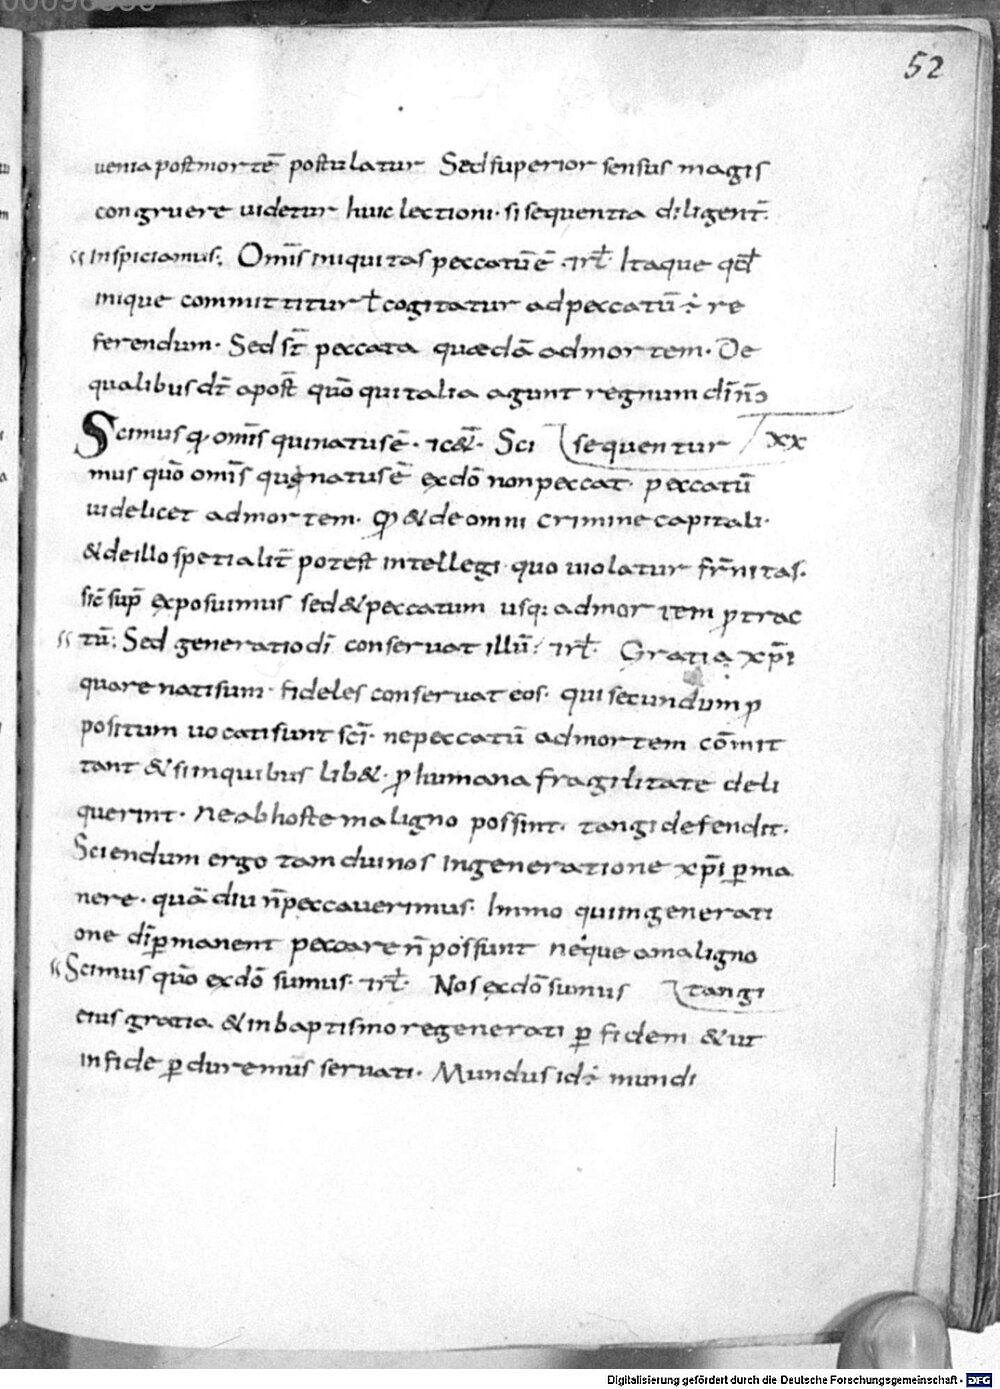 52
uenia post mortē postulatur Sed superior sensus magis
congruere uidetur huic lectioni· si sequentia diligent̄·
inspiciamus; Om̄is iniquitas peccatū ē· et rł Itaque qđ
inique committitur ł cogitatur ad peccatū ÷ re
ferendum· Sed st̄ peccata quædā ad mortem· De
qualibus dt̄ apost̄ quō qui talia agunt regnum dī n̄
Scimus q̨ om̄is qui natus ē· ex & · Sci sequentur xx
mus quō om̄is qui natus ē ex dō non peccat· peccatū
uidelicet ad mortem· q̨ & de omni crimine capitali·
& de illo spetialit̄ potest intellegi quo uiolatur fr̄nitas·
sic̄ sup̄ exposuimus sed & peccatum usq: ad mortem ꝓtrac
tū; Sed generatio dī conseruat illū; et rł· Gratia xp̄i
qua renati sum· fideles conseruat eos· qui secundum ꝓ
positum uocati sunt sc̄i· ne peccatū ad mortem cōmit
tant & si in quibus lib&· ꝓ humana fragilitate deli
querint· ne ab hoste maligno possint· tangi defendit·
Sciendum ergo tam diu nos in generatione xp̄i ꝑma
nere· quā diu n̄ peccauerimus· Immo qui in generati
one dī ꝑmanent peccare n̄ possunt neque a maligno
Scimus quō ex dō sumus· et rł· Nos ex dō sumus tangi
eius gratia & in baptismo regenerati ꝑ fidem & ut
in fide ꝑduremus seruati· Mundus id ÷ mundi
Digitalisierung gefördert durch die Deutsche Forschungsgemeinschaft - DFG